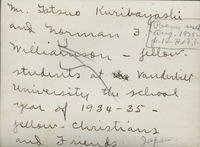 Mr. Tatsuo Kuribayashi
and Norman F.
Williamson - fellow-
students at Vanderbilt
University the school
year of 1934-35-
fellow-Christians
and Friends. Japan.
Aug. 1935